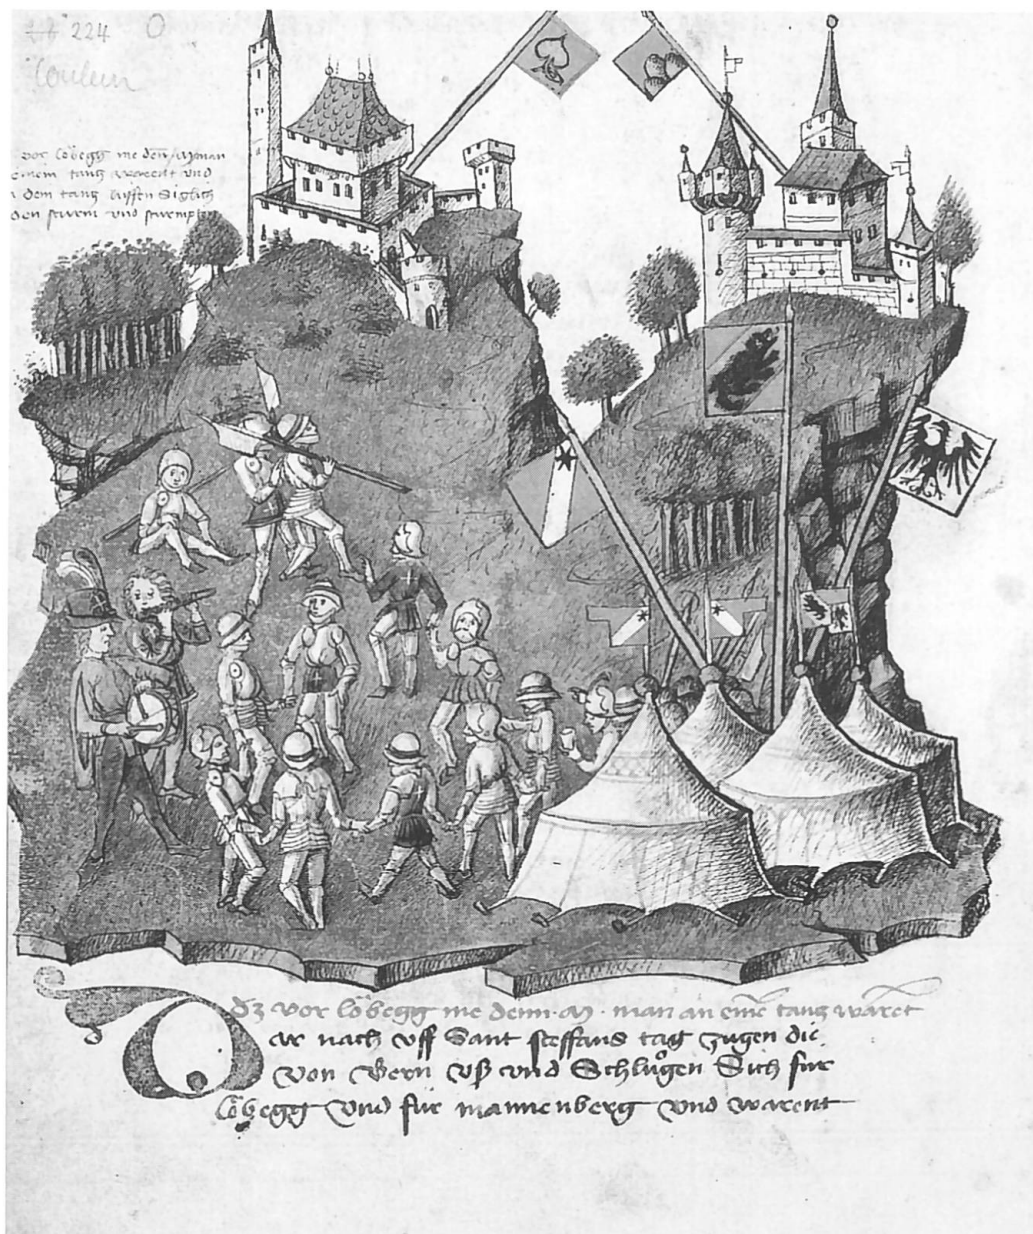 224 O
Couleur
vor löbegg me den / M man
einem tantz warent vnd
dem tantz
den vnd
dz vor löbegg me denn · M · man an eine tantz waret
Dar nach vff Sant steffans tag zugen die
Von Bern vß vnd Schlůgen Sich fur
löbegg Vnd fur mannenberg Vnd warent